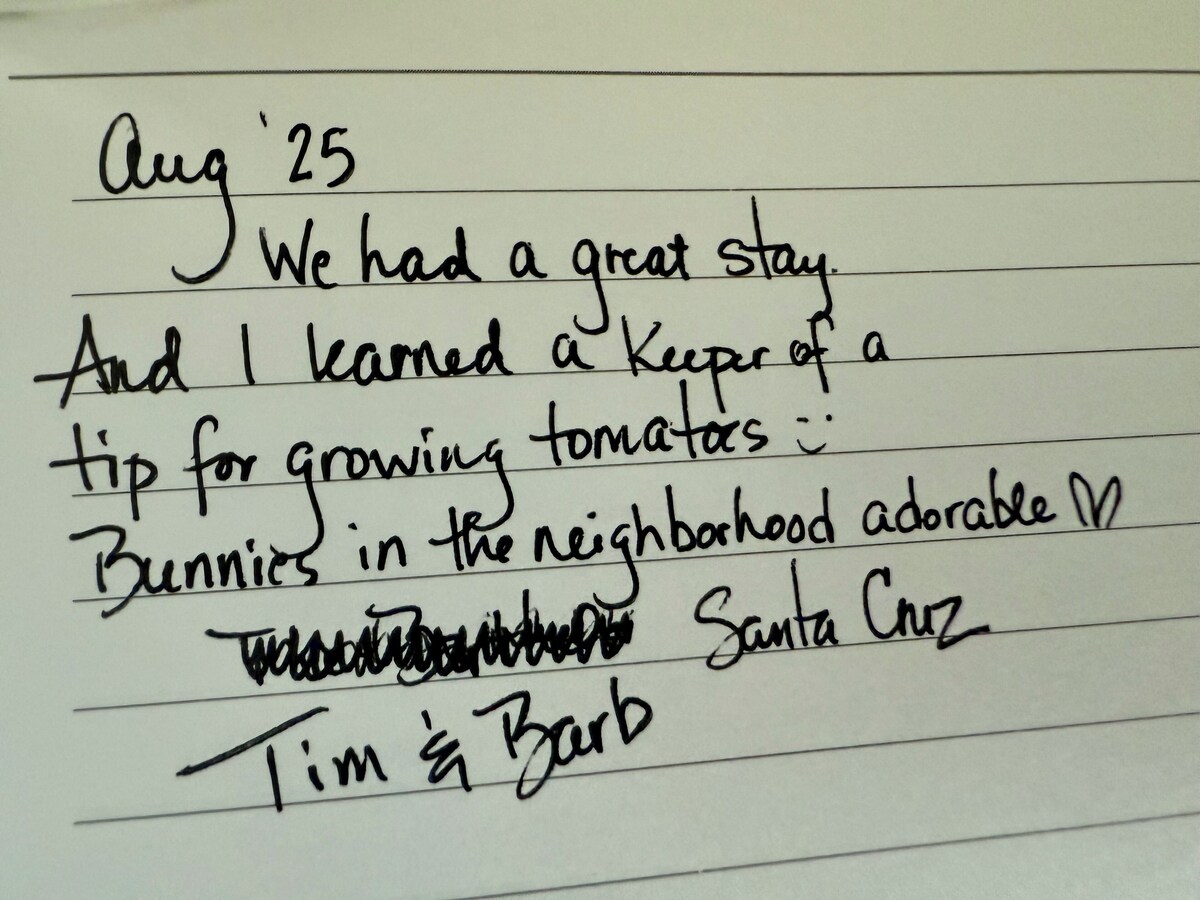 Aug '25
We had a great stay.
And I learned a keeper of a
tip for growing tomatoes :)
Bunnies in the neighborhood adorable ♡
Santa Cruz
Tim & Barb